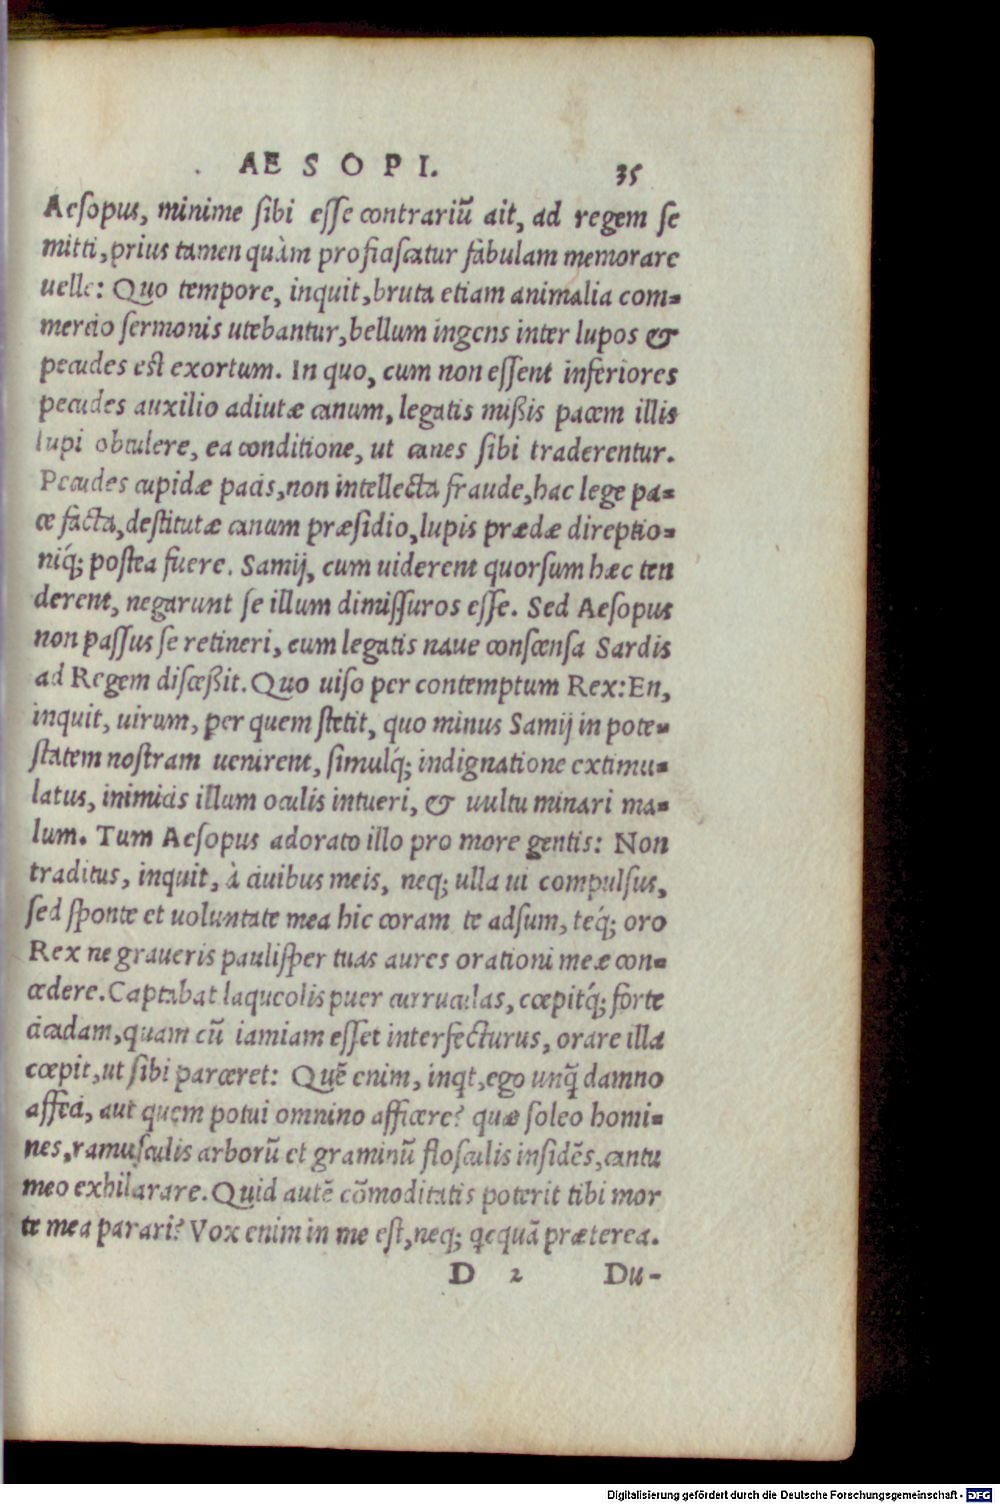 AESOPI. 35
Aesopus, minime sibi esse contrariũ ait, ad regem se
mitti, prius tamen quàm proficiscatur fabulam memorare
uelle: Quo tempore, inquit, bruta etiam animalia com-
mercio sermonis utebantur, bellum ingens inter lupos &
pecudes est exortum. In quo, cum non essent inferiores
pecudes auxilio adiutæ canum, legatis mißis pacem illis
lupi obtulere, ea conditione, ut canes sibi traderentur.
Pecudes cupidæ pacis, non intellecta fraude, hac lege pa-
ce facta, destitutæ canum præsidio, lupis prædæ direptio-
niq́; postea fuere. Samij, cum uiderent quorsum hæc ten
derent, negarunt se illum dimissuros esse. Sed Aesopus
non passus se retineri, cum legatis naue conscensa Sardis
ad Regem disceßit. Quo uiso per contemptum Rex: En,
inquit, uirum, per quem stetit, quo minus Samij in pote-
statem nostram uenirent, simulq́; indignatione extimu-
latus, inimicis illum oculis intueri, & uultu minari ma-
lum. Tum Aesopus adorato illo pro more gentis: Non
traditus, inquit, à ciuibus meis, neq; ulla ui compulsus,
sed sponte et uoluntate mea hic coram te adsum, teq́; oro
Rex ne graueris paulisper tuas aures orationi meæ con-
cedere. Captabat laqueolis puer curruculas, cœpitq́; forte
cicadam, quam cũ iamiam esset interfecturus, orare illa
cœpit, ut sibi parceret: Quẽ enim, inqt, ego unq̃ damno
affeci, aut quem potui omnino afficere? quæ soleo homi-
nes, ramusculis arborũ et graminũ flosculis insidẽs, cantu
meo exhilarare. Quid autẽ cõmoditatis poterit tibi mor
te mea parari? Vox enim in me est, neq; qcquã præterea.
D 2 Du-
Digitalisierung gefördert durch die Deutsche Forschungsgemeinschaft - DFG